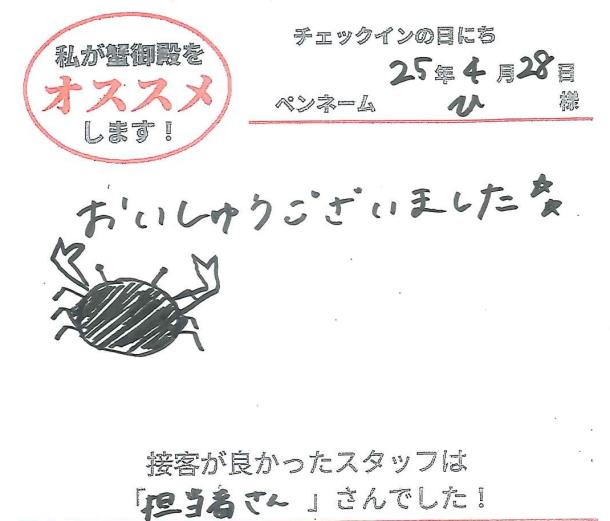 私が蟹御殿を
オススメ
します！
チェックインの日にち
25年4月28日
ペンネーム ひ 様
おいしゅうございました☆☆
接客が良かったスタッフは
「担当者さん」さんでした！